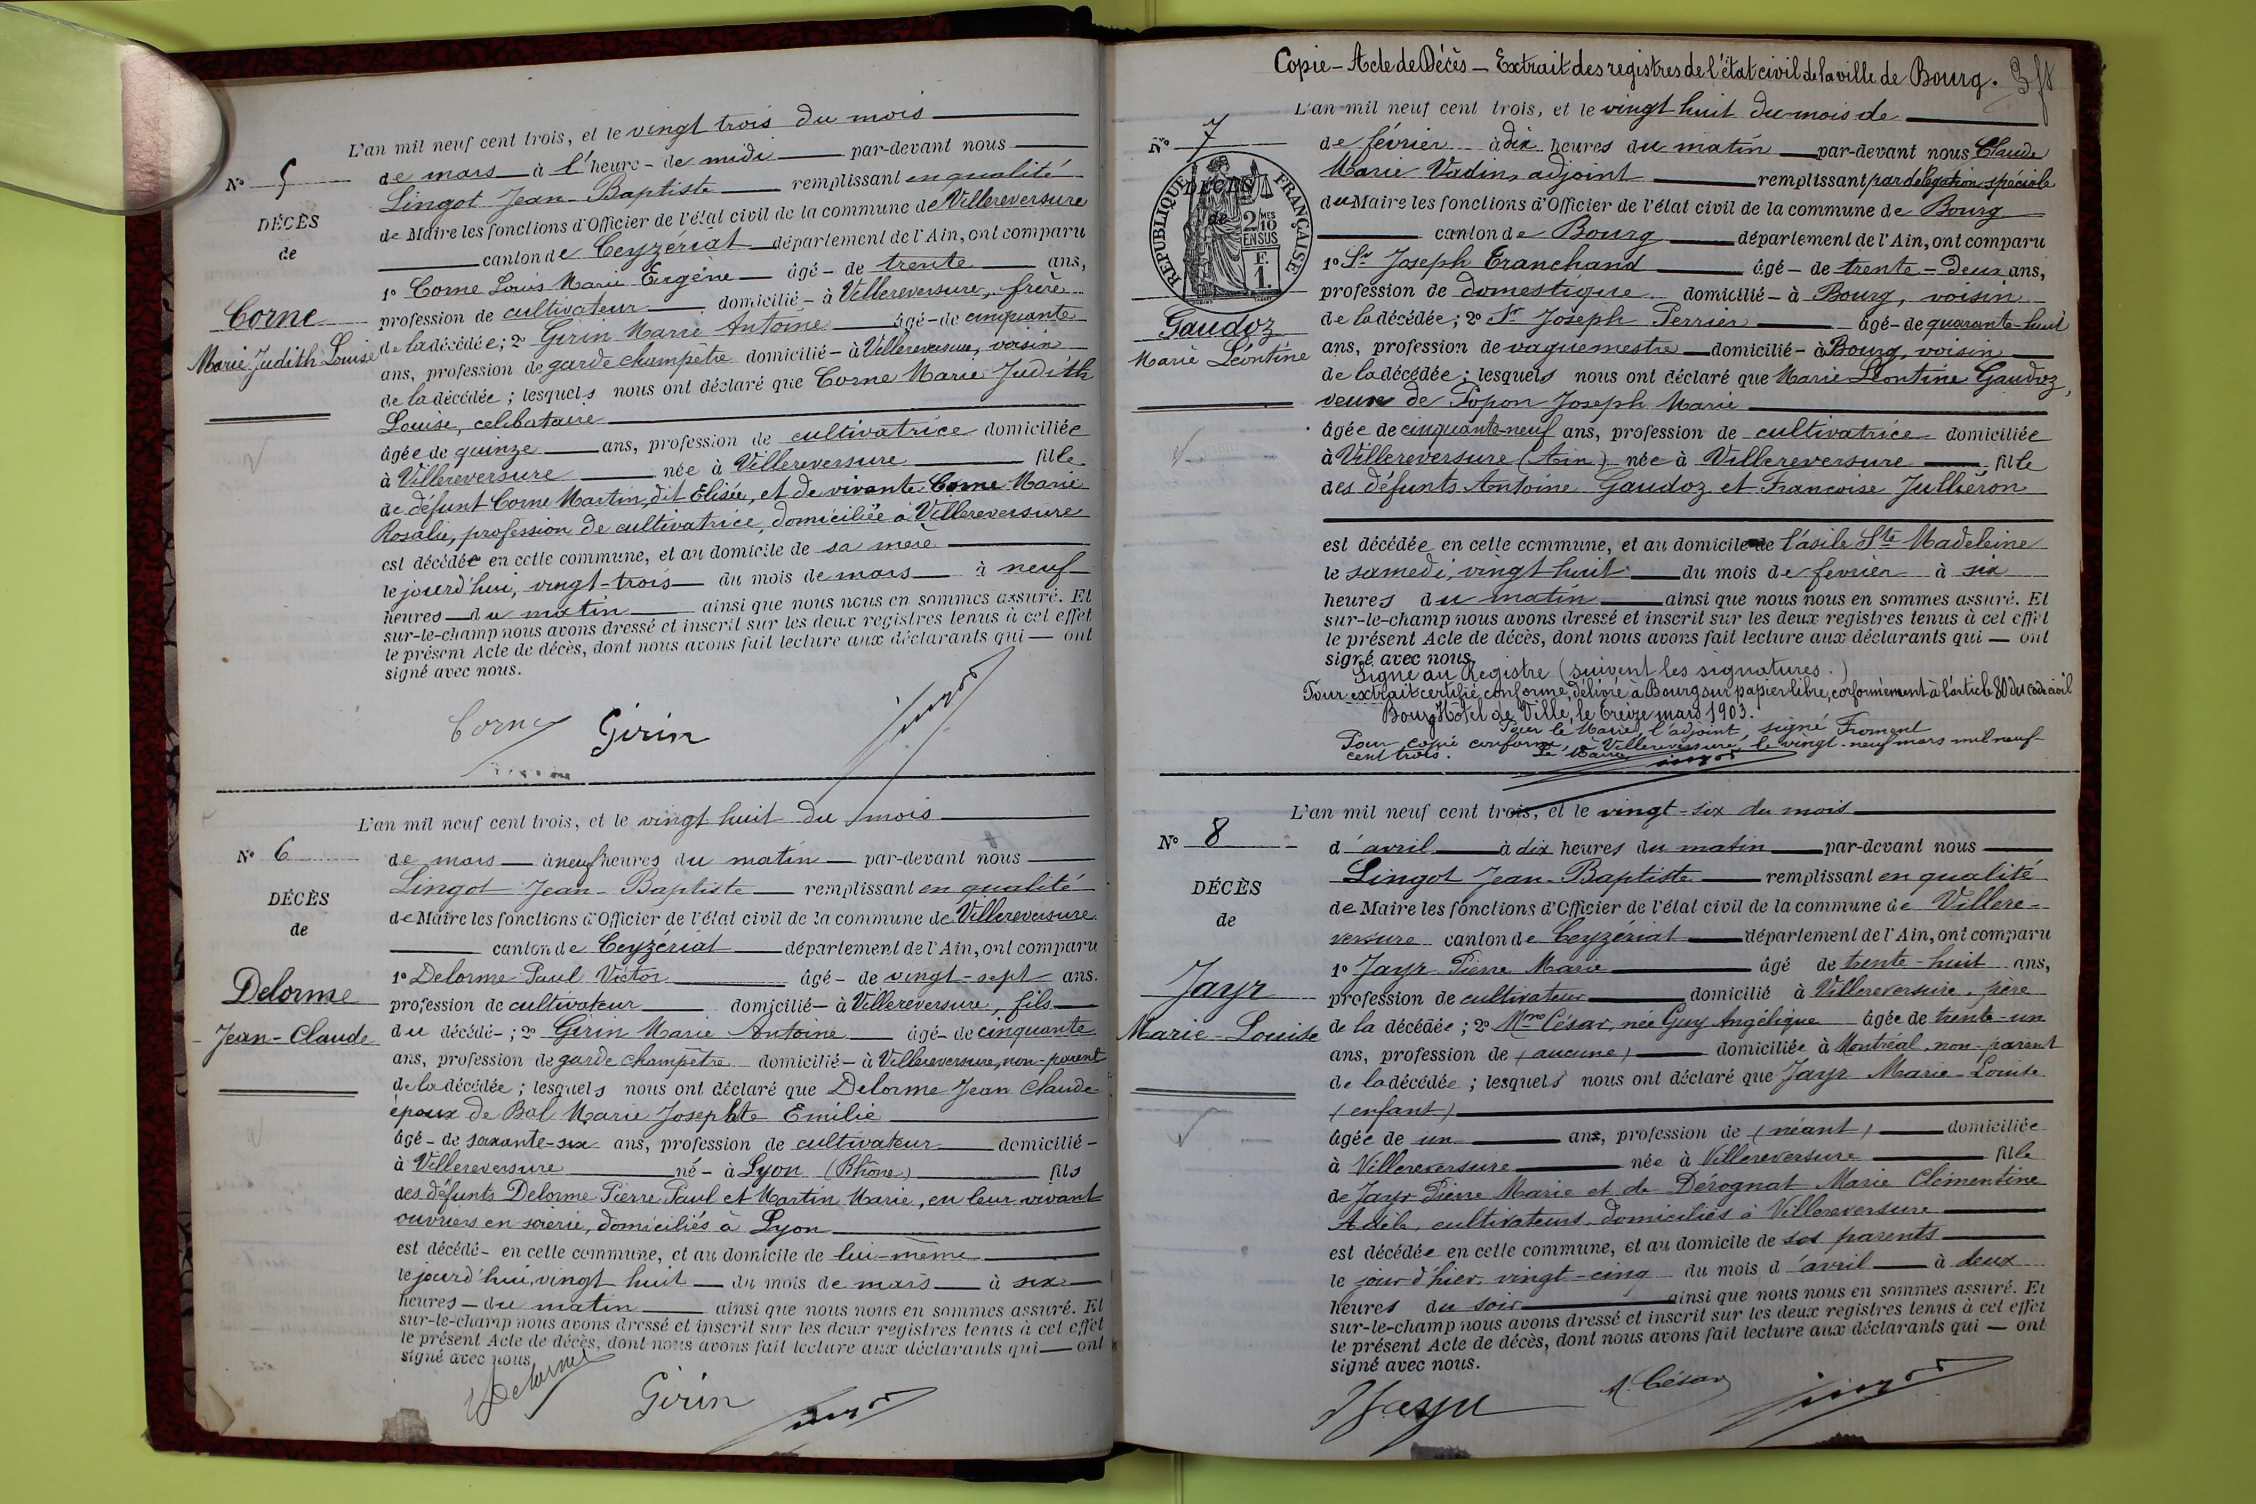 L'an mil neuf cent trois, et le vingt trois du mois
No 5
de mars à l'heure de midi par-devant nous
Lingot Jean-Baptiste remplissant en qualité
DÉCÈS
de Maire les fonctions d'Officier de l'état civil de la commune de Villereversure
de
canton de Ceyzériat département de l'Ain, ont comparu
1o Corne Louis Marie Eugène âgé de trente ans,
Corne
profession de cultivateur domicilié à Villereversure, frère
Marie Judith Louise
de la décédée; 2o Girin Marie Antoine âgé de cinquante
ans, profession de garde champêtre domicilié à Villereversure, voisin
de la décédée; lesquels nous ont déclaré que Corne Marie Judith
Louise, celibataire
âgée de quinze ans, profession de cultivatrice domiciliée
à Villereversure née à Villereversure fille
de défunt Corne Martin, dit Elisée, et de vivante Corne Marie
Rosalie, profession de cultivatrice, domiciliée à Villereversure
est décédée en cette commune, et au domicile de sa mère
le jourd'hui, vingt-trois du mois de mars à neuf
heures du matin ainsi que nous nous en sommes assuré. Et
sur-le-champ nous avons dressé et inscrit sur les deux registres tenus à cet effet
le présent Acte de décès, dont nous avons fait lecture aux déclarants qui ont
signé avec nous.
Corne Girin Lingot
L'an mil neuf cent trois, et le vingt huit du mois
No 6
de mars à neuf heures du matin par-devant nous
Lingot Jean-Baptiste remplissant en qualité
DÉCÈS
de Maire les fonctions d'Officier de l'état civil de la commune de Villereversure
de
canton de Ceyzériat département de l'Ain, ont comparu
1o Delorme Paul Victor âgé de vingt-sept ans.
Delorme
profession de cultivateur domicilié à Villereversure, fils
Jean-Claude
du décédé; 2o Girin Marie Antoine âgé de cinquante
ans, profession de garde champêtre domicilié à Villereversure, non-parent
de la décédée; lesquels nous ont déclaré que Delorme Jean Claude
époux de Bal Marie Josephte Emilie
âgé de soixante-six ans, profession de cultivateur domicilié
à Villereversure né à Lyon (Rhône) fils
des défunts Delorme Pierre Paul et Martin Marie, en leur vivant
ouvriers en soierie, domiciliés à Lyon
est décédé en cette commune, et au domicile de lui-même
le jourd'hui, vingt huit du mois de mars à six
heures du matin ainsi que nous nous en sommes assuré. Et
sur-le-champ nous avons dressé et inscrit sur les deux registres tenus à cet effet
le présent Acte de décès, dont nous avons fait lecture aux déclarants qui ont
signé avec nous
Delorme Girin Lingot
Copie - Acte de Décès - Extrait des registres de l'état civil de la ville de Bourg.
L'an mil neuf cent trois, et le vingt huit du mois de
No 7
de février à dix heures du matin par-devant nous Claude
Marie Vadin, adjoint remplissant par délégation spéciale
DÉCÈS
de
RÉPUBLIQUE FRANÇAISE
2 MES 10 EN SUS
F. 1.
du Maire les fonctions d'Officier de l'état civil de la commune de Bourg
canton de Bourg département de l'Ain, ont comparu
1o Sr Joseph Tranchand âgé de trente-deux ans,
profession de domestique domicilié à Bourg, voisin
Gaudoz
de la décédée; 2o Sr Joseph Perrier âgé de quarante huit
Marie Léontine
ans, profession de vaguemestre domicilié à Bourg, voisin
de la décédée; lesquels nous ont déclaré que Marie Léontine Gaudoz,
veuve de Popon Joseph Marie
âgée de cinquante-neuf ans, profession de cultivatrice domiciliée
à Villereversure (Ain) née à Villereversure fille
des défunts Antoine Gaudoz et Françoise Julliéron
est décédée en cette commune, et au domicile de l'asile Ste Madeleine
le samedi, vingt huit du mois de février à six
heures du matin ainsi que nous nous en sommes assuré. Et
sur-le-champ nous avons dressé et inscrit sur les deux registres tenus à cet effet
le présent Acte de décès, dont nous avons fait lecture aux déclarants qui ont
signé avec nous
Signé au Registre (suivent les signatures.)
Pour extrait certifié conforme, délivré à Bourg sur papier libre, conformément à l'article 80 du code civil
Bourg Hôtel de Ville, le treize mars 1903.
Pour le Maire, l'adjoint, signé Froment
Pour copie conforme, à Villereversure, le vingt-neuf mars mil neuf
cent trois. Le Maire
Lingot
L'an mil neuf cent trois, et le vingt-six du mois
No 8
d'avril à dix heures du matin par-devant nous
Lingot Jean-Baptiste remplissant en qualité
DÉCÈS
de Maire les fonctions d'Officier de l'état civil de la commune de Villere-
de
versure canton de Ceyzériat département de l'Ain, ont comparu
1o Jayr Pierre Marie âgé de trente-huit ans,
Jayr
profession de cultivateur domicilié à Villereversure, père
Marie-Louise
de la décédée; 2o Mme César, née Guy Angélique âgée de trente-un
ans, profession de (aucune) domiciliée à Montréal, non-parent
de la décédée; lesquels nous ont déclaré que Jayr Marie-Louise
(enfant)
âgée de un ans, profession de (néant) domiciliée
à Villereversure née à Villereversure fille
de Jayr Pierre Marie et de Dérognat Marie Clémentine
Adèle, cultivateurs, domiciliés à Villereversure
est décédée en cette commune, et au domicile de ses parents
le jour d'hier, vingt-cinq du mois d'avril à deux
heures du soir ainsi que nous nous en sommes assuré. Et
sur-le-champ nous avons dressé et inscrit sur les deux registres tenus à cet effet
le présent Acte de décès, dont nous avons fait lecture aux déclarants qui ont
signé avec nous.
Jayr A. César Lingot